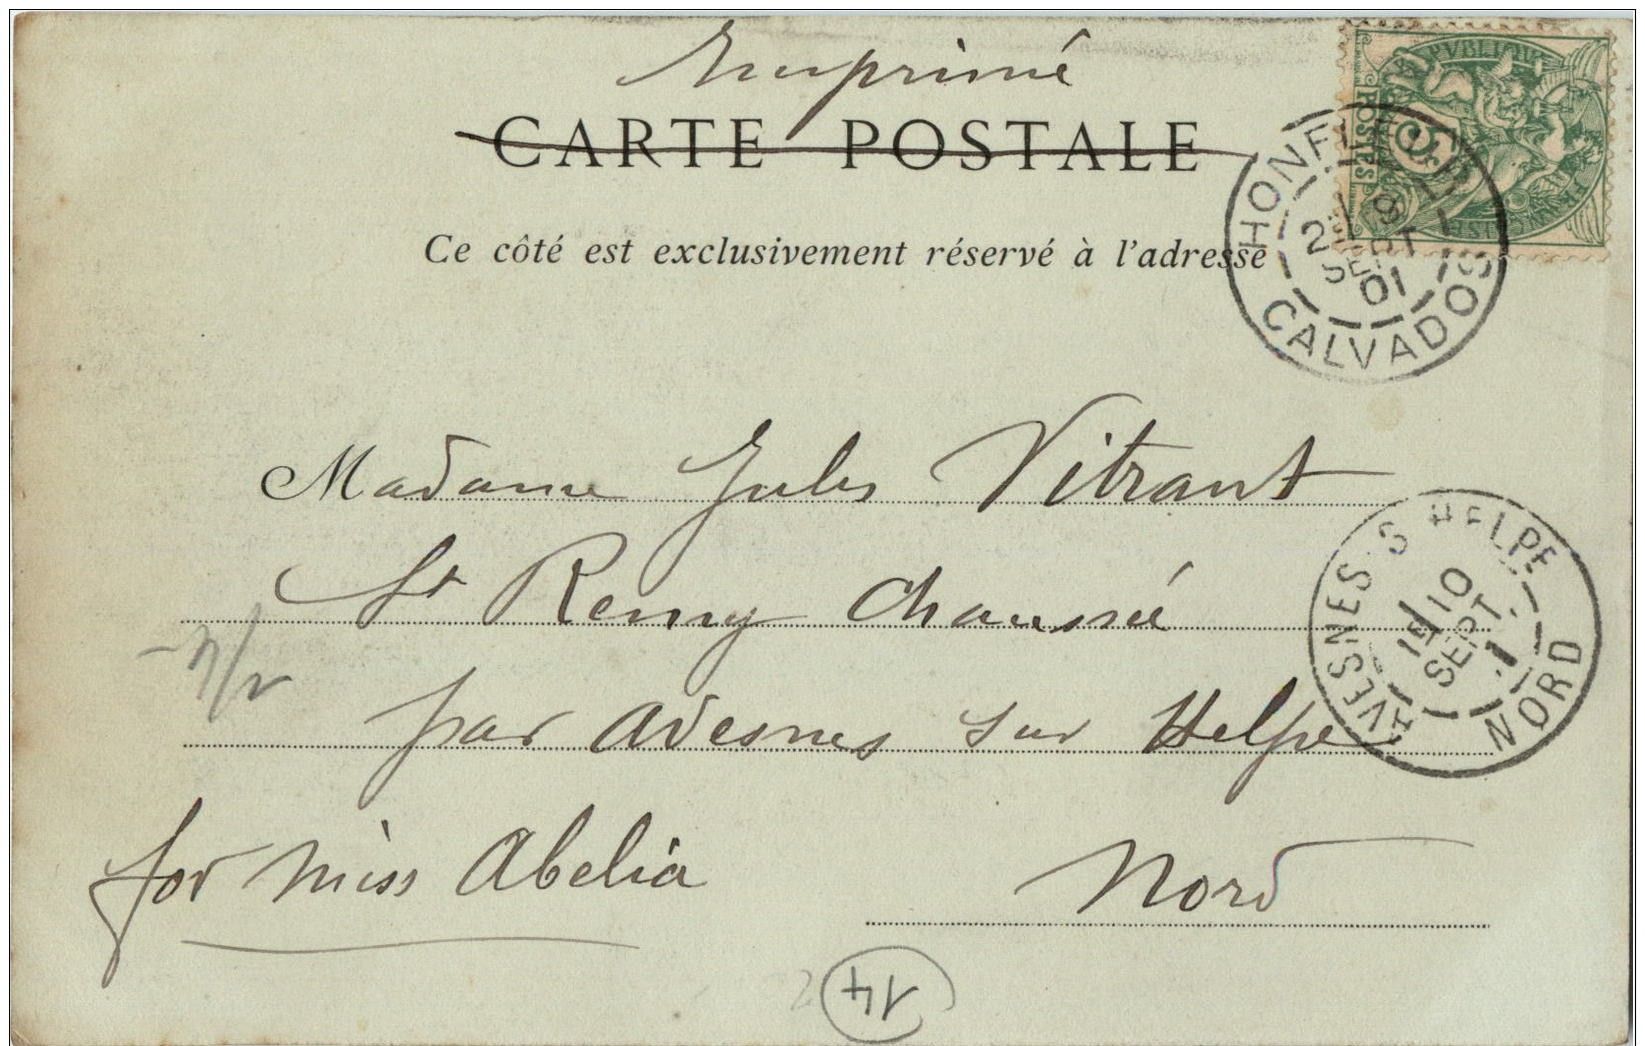 Imprimé
CARTE POSTALE
Ce côté est exclusivement réservé à l'adresse
RÉPUBLIQUE
FRANÇAISE
POSTES
5c
HONFLEUR
2E
9
SEPT
01
CALVADOS
Madame Jules Vitrant
St Remy Chaussée
par Avesnes sur Helpe
Nord
for miss Abelia
AVESNES S HELPE
10
SEPT
1
NORD
14